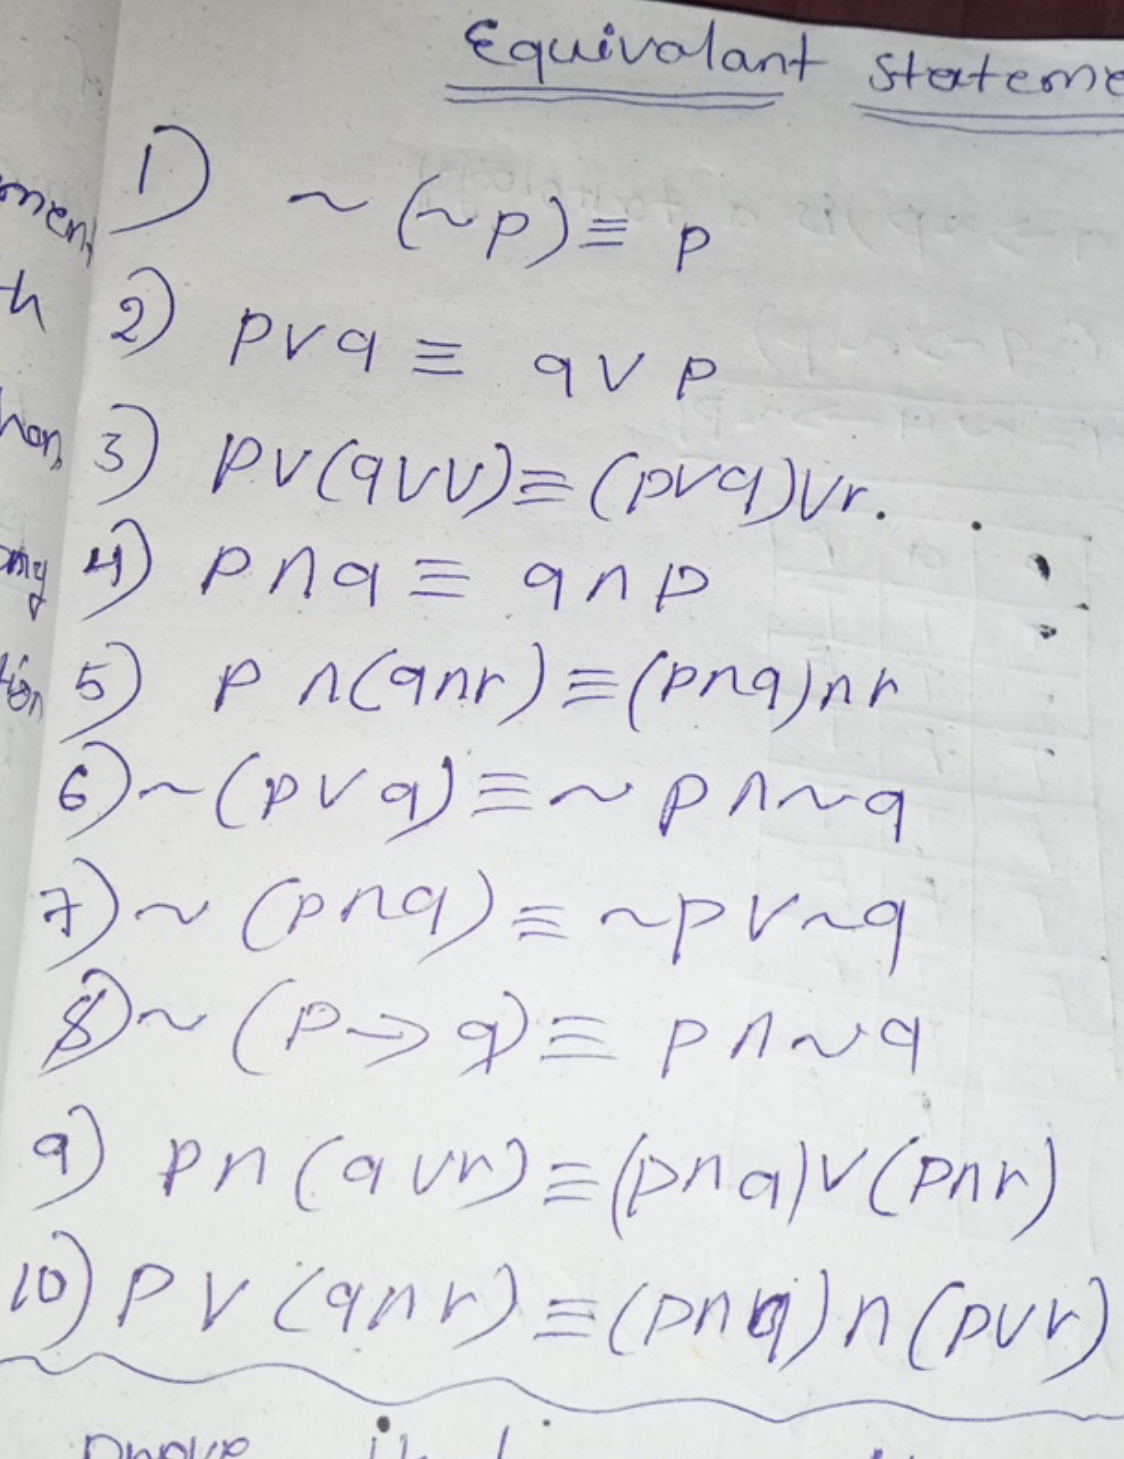 Equivalant Stateme
1) ~ (~p) ≡ p
2) p∨q ≡ q∨p
3) p∨(q∨v) ≡ (p∨q)∨r.
4) p∧q ≡ q∧p
5) p ∧(q∧r) ≡ (p∧q)∧r
6) ~ (p∨q) ≡ ~p∧~q
7) ~ (p∧q) ≡ ~p∨~q
8) ~ (p→q) ≡ p∧~q
9) p∧(q∨r) ≡ (p∧q)∨(p∧r)
10) p∨(q∧r) ≡ (p∧q)∧(p∨r)